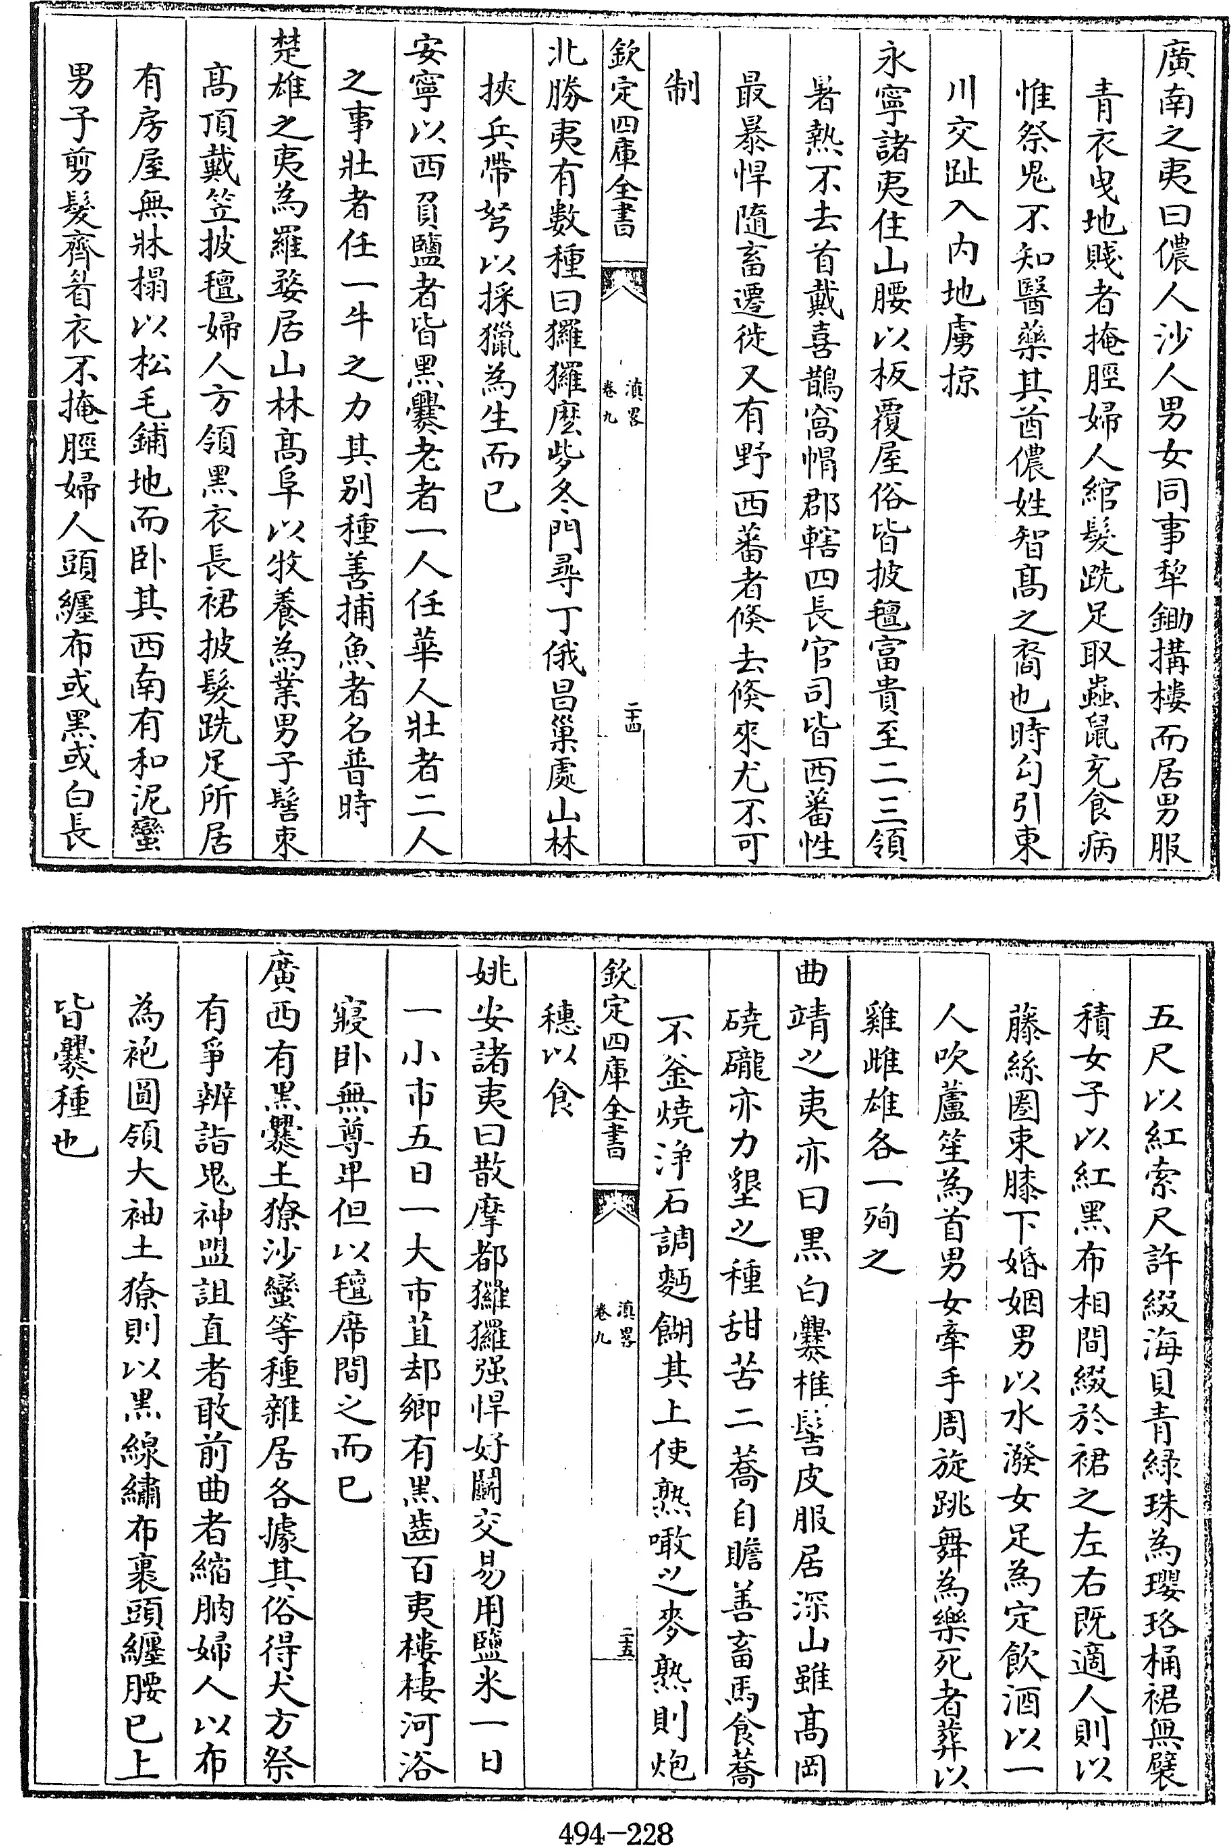 廣南之夷曰儂人沙人男女同事犂鋤搆樓而居男服
青衣曵地賤者掩脛婦人綰髪跣足取蟲鼠充食病
惟祭鬼不知醫藥其酋儂姓智髙之裔也時勾引東
川交趾入内地虜掠
永寧諸夷住山腰以板覆屋俗皆披氊富貴至二三領
暑熱不去首戴喜鵲窩帽郡轄四長官司皆西蕃性
最暴悍隨畜遷徙又有野西蕃者倐去倐來尤不可
制
欽定四庫全書
滇畧
卷九
二十四
北勝夷有數種曰玀玀麽些冬門尋丁俄昌巢處山林
挾兵帶弩以採獵為生而已
安寧以西負鹽者皆黑爨老者一人任華人壯者二人
之事壯者任一牛之力其别種善捕魚者名普時
楚雄之夷為羅婺居山林髙阜以牧養為業男子髻束
髙頂戴笠披氊婦人方領黑衣長裙披髪跣足所居
有房屋無牀榻以松毛鋪地而卧其西南有和泥蠻
男子剪髮齊眉衣不掩脛婦人頭纏布或黑或白長
五尺以紅索尺許綴海貝青緑珠為瓔珞桶裙無襞
積女子以紅黑布相間綴於裙之左右既適人則以
藤絲圏束膝下婚姻男以水潑女足為定飲酒以一
人吹蘆笙為首男女牽手周旋跳舞為樂死者葬以
雞雌雄各一殉之
曲靖之夷亦曰黑白爨椎髻皮服居深山雖髙岡
磽礲亦力墾之種甜苦二蕎自贍善畜馬食蕎
不釜燒浄石調麫餬其上使熟噉之麥熟則炮
穗以食
欽定四庫全書
滇畧
卷九
二十五
姚安諸夷曰散摩都玀玀强悍好鬬交易用鹽米一日
一小市五日一大市苴却鄉有黑齒百夷樓棲河浴
寢卧無尊卑但以氊席間之而已
廣西有黑爨土獠沙蠻等種雜居各據其俗得犬方祭
有爭辨詣鬼神盟詛直者敢前曲者縮朒婦人以布
為袍圓領大袖土獠則以黑線繡布裹頭纏腰已上
皆爨種也
494-228